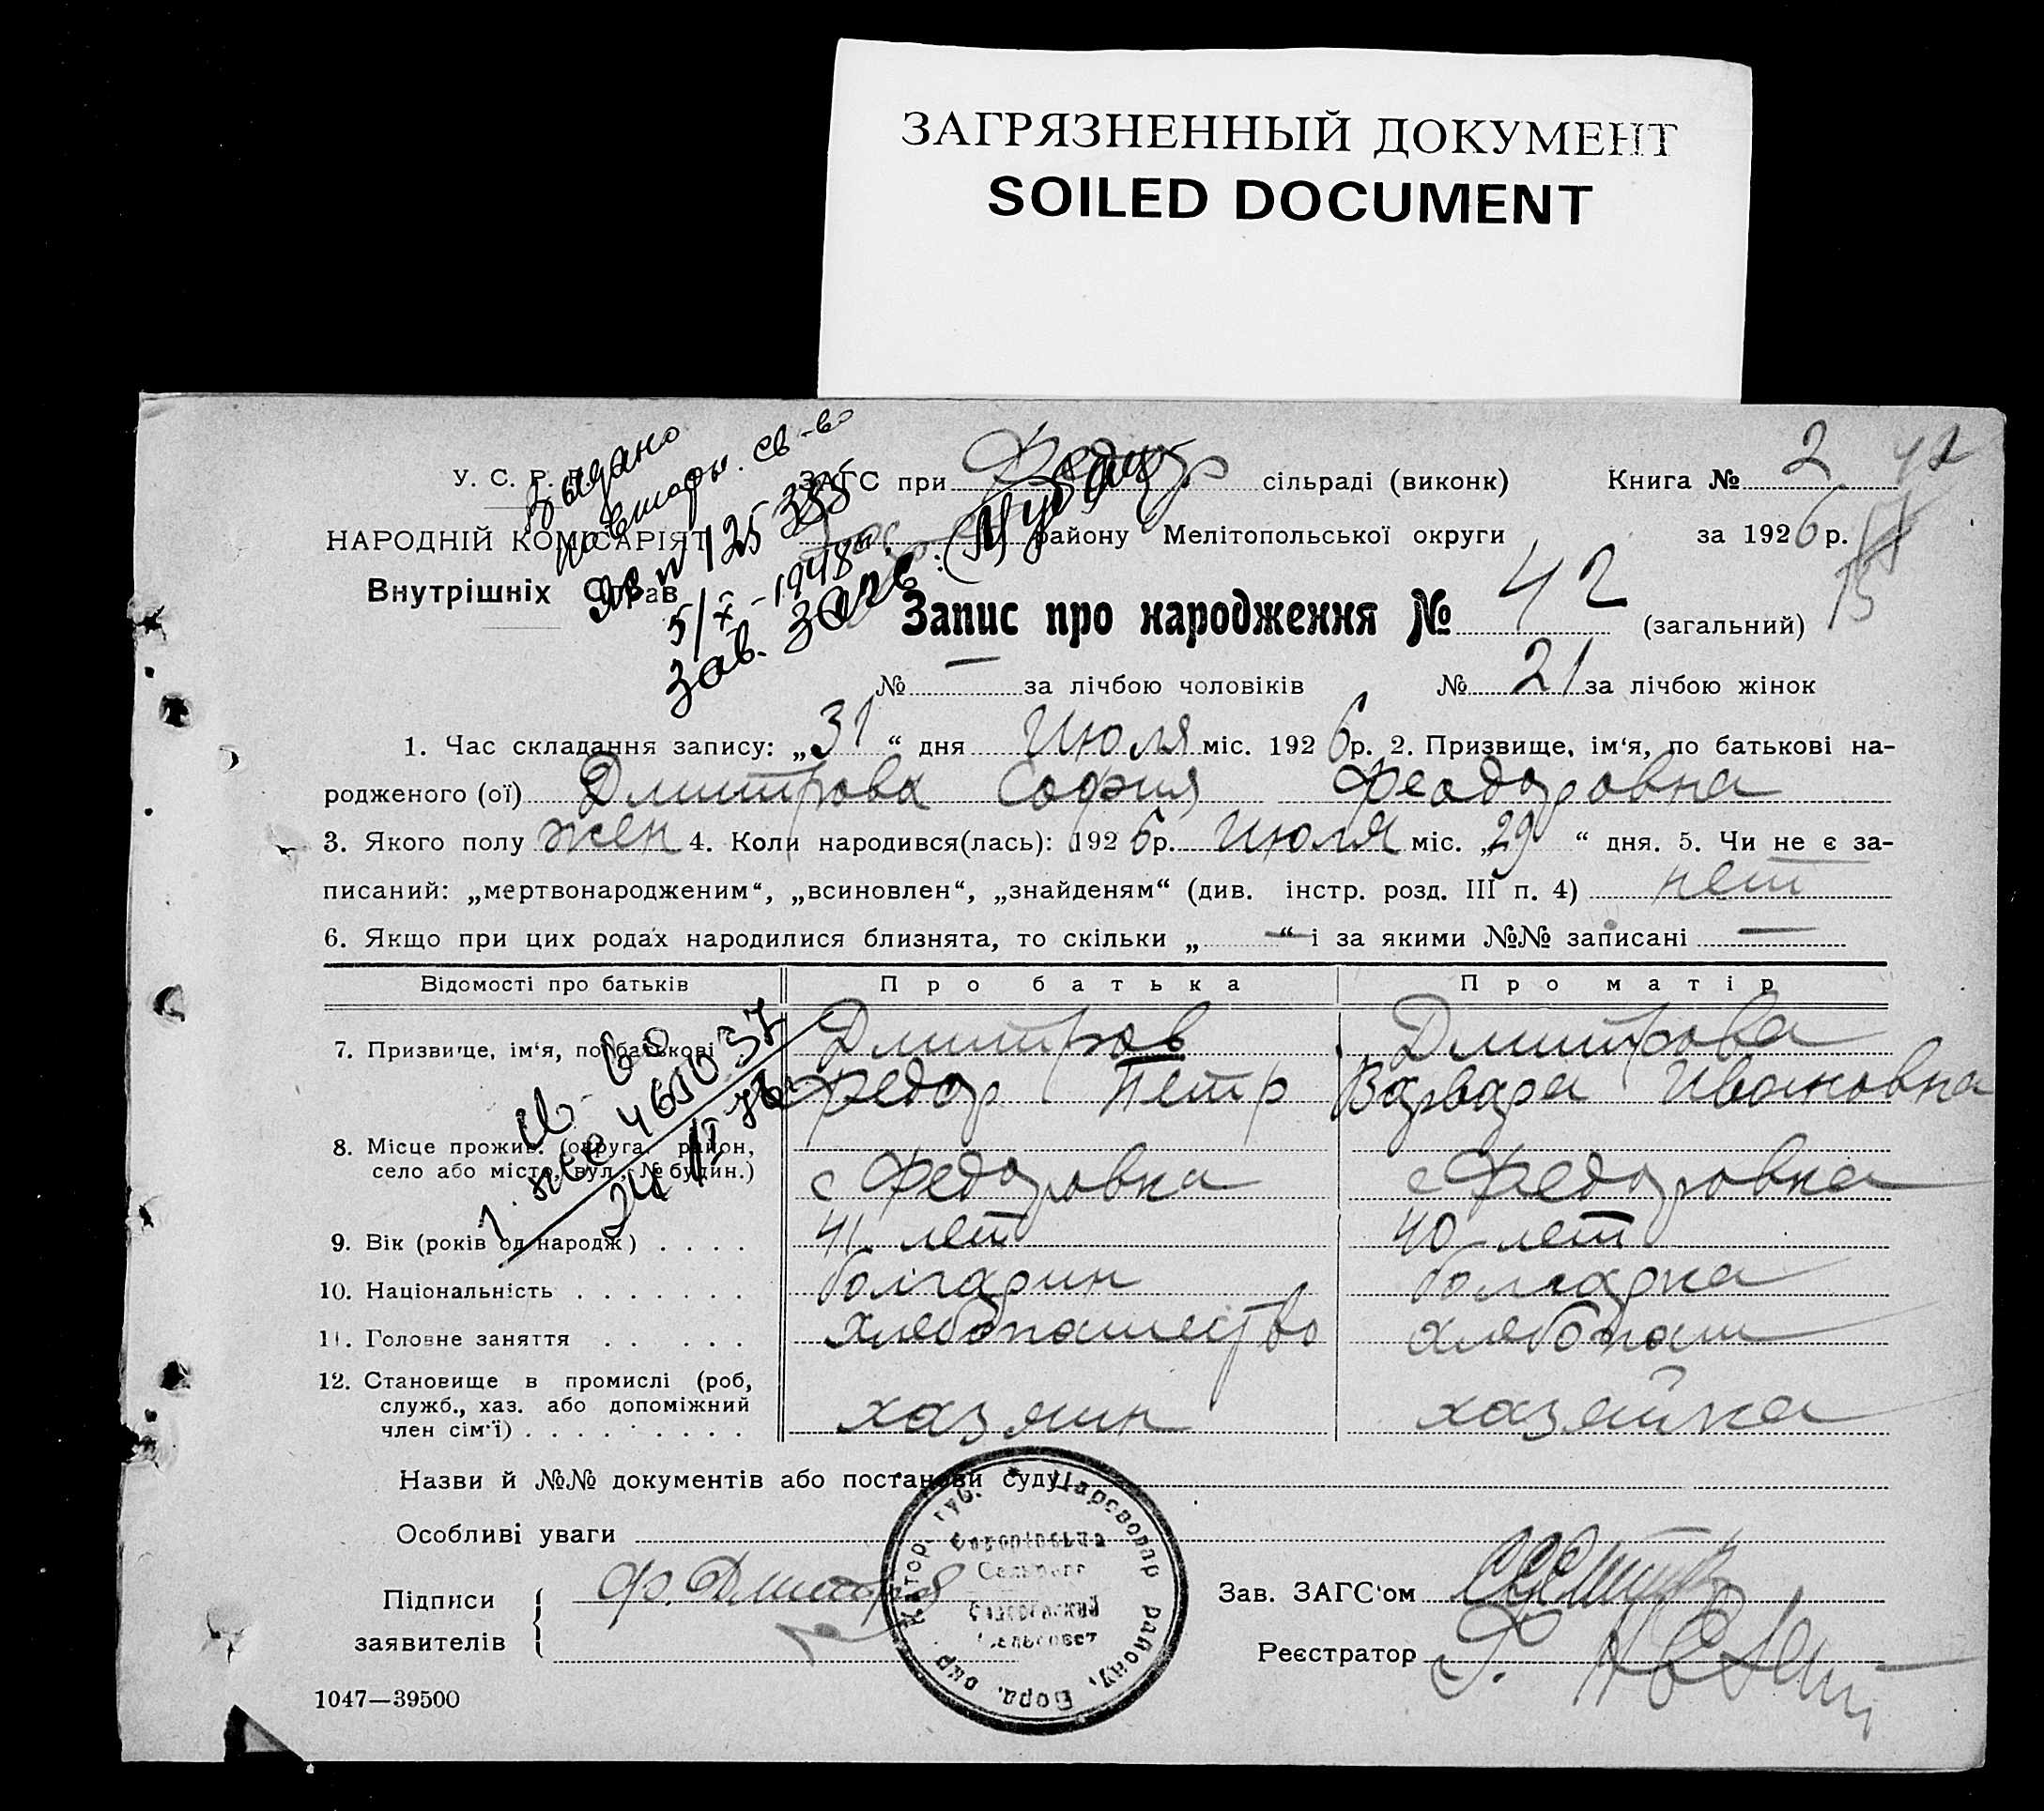 ЗАГРЯЗНЕННЫЙ ДОКУМЕНТ
SOILED DOCUMENT
У. С. Р. Р. ЗАГС при Федор сільраді (виконк) Книга № 2 42
Выдано
повторн. св-во
№ 125355
5/X - 1948 г.
Зав. Загс:
НАРОДНІЙ КОМІСАРІЯТ району Мелітопольської округи за 1926 р.
Внутрішніх Справ
Запис про народження № 42 (загальний) 15
№ — за лічбою чоловіків № 21 за лічбою жінок
1. Час складання запису: „31“ дня Июля міс. 1926 р. 2. Призвище, ім‘я, по батькові на-
родженого (ої) Дмитрова София Феодоровна
3. Якого полу жен 4. Коли народився(лась): 1926 р. Июля міс. „29“ дня. 5. Чи не є за-
писаний: „мертвонародженим“, „всиновлен“, „знайденям“ (див. інстр. розд. III п. 4) нет
6. Якщо при цих родах народилися близнята, то скільки „—“ і за якими №№ записані —
Відомості про батьків Про батька Про матір
7. Призвище, ім‘я, по батькові Дмитров Дмитрова
Федор Петр Варвара Ивановна
8. Місце прожив. (округа, район,
село або місто, вул., № будин.) с Федоровка с Федоровка
9. Вік (років од народж) . . . . 41 лет 40 лет
10. Національність . . . . . . . болгарин болгарка
11. Головне заняття . . . . . хлебопашество хлебопаш
12. Становище в промислі (роб,
служб., хаз. або допоміжний
член сім‘ї) . . . . . . . . . хазяин хазяйка
Назви й №№ документів або постанови суду
Особливі уваги
Підписи
заявителів
Ф. Дмитров
Зав. ЗАГС‘ом
Реєстратор
Катор. губ. Цареводар району, Берд. окр.
Сельсовет
1047—39500